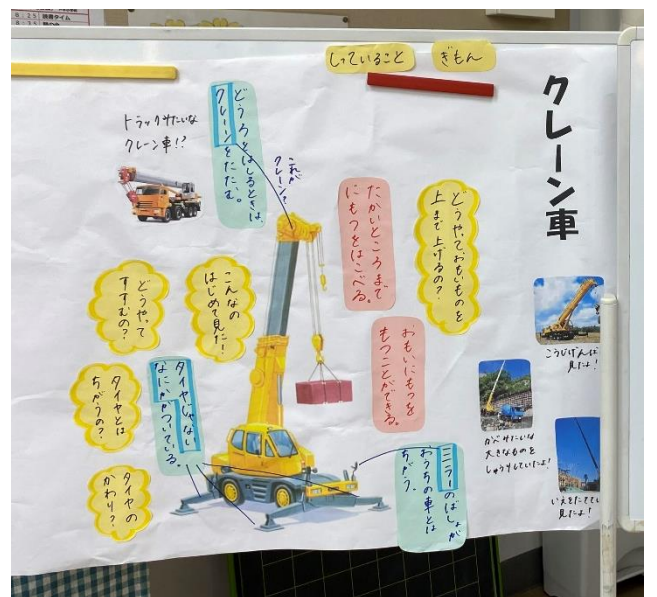 8:25 読書タイム
8:35
しっていること
ぎもん
クレーン車
どうろをはしるときは、
クレーンをたたむ。
トラックみたいな
クレーン車!?
これが
クレーン?
たかいところまで
にもつをはこべる。
どうやっておもいものを
上まで上げるの?
こんなの
はじめて見た!
どうやって
すすむの?
おもいにもつを
もつことができる。
タイヤじゃない
なにかがついている。
タイヤとは
ちがうの?
タイヤの
かわり?
ミラーのばしょが
おうちの車とは
ちがう。
こうじげんば
見たよ!
かべみたいな
大きなものを
しゅうりしていたよ!
いえをたてて
見たよ!